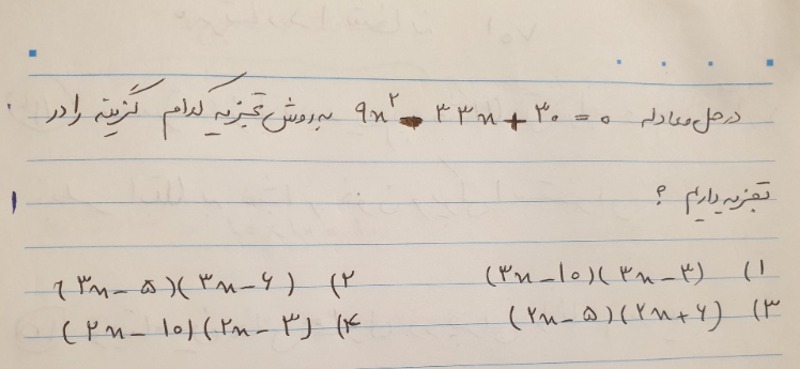 در حل معادله ۹x² - ۳۳x + ۳۰ = ۰ به روش تجزیه کدام گزینه را در
تجزیه داریم ؟
۱) (۳x - ۱۰)(۳x - ۳) ۲) (۳x - ۵)(۳x - ۶)
۳) (۲x - ۵)(۲x + ۶) ۴) (۲x - ۱۰)(۲x - ۳)